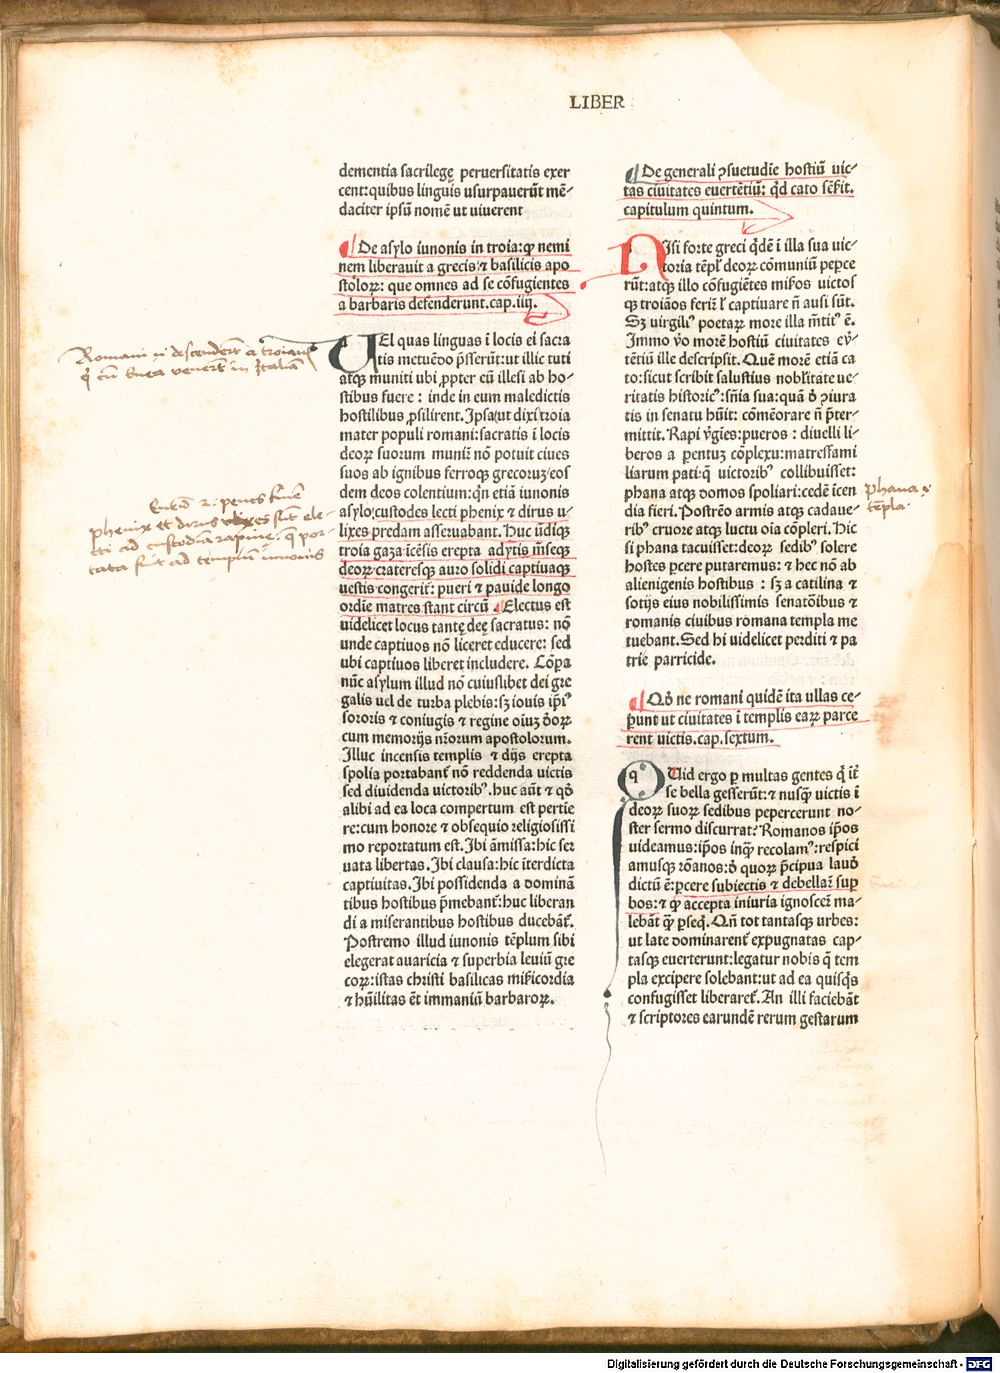 LIBER
dementia sacrilegę peruersitatis exer
cent:quibus linguis usurpauerūt mē⸗
daciter ipsū nomē ut uiuerent
¶ De asylo iunonis in troia:qꝫ nemi
nem liberauit a grecis:⁊ basilicis apo
stoloꝝ: que omnes ad se cōfugientes
a barbaris defenderunt.cap.iiij.
UEl quas linguas ī locis ei sacra
tis metuēdo p̄sserūt:ut illic tuti
atqꝫ muniti ubi ꝓpter eū illesi ab ho⸗
stibus fuere: inde in eum maledictis
hostilibus ꝓsilirent. Ipsa(ut dixi)troia
mater populi romani:sacratis ī locis
deoꝝ suorum munir̄ nō potuit ciues
suos ab ignibus ferroqꝫ grecoruꝫ:eos
dem deos colentium:qn̄ etiā iunonis
asylo:custodes lecti phenix ⁊ dirus u⸗
lixes predam asseruabant. Huc ūdiqꝫ
troia gaza īcēsis erepta adytis m̄seqꝫ
deoꝝ:crateresqꝫ auro solidi captiuaqꝫ
uestis congerit̄: pueri ⁊ pauide longo
ordīe matres stant circū. Electus est
uidelicet locus tantę deę sacratus: nō
unde captiuos nō liceret educere: sed
ubi captiuos liberet includere. Cōpa
nūc asylum illud nō cuiuslibet dei gre
galis uel de turba plebis:sꝫ iouis ip̄iꝰ
sororis ⁊ coniugis ⁊ regine oiuꝫ ðoꝝ
cum memorijs nr̄orum apostolorum.
Illuc incensis templis ⁊ dijs erepta
spolia portabant̄ nō reddenda uictis
sed diuidenda uictoribꝰ. huc aūt ⁊ qð
alibi ad ea loca compertum est pertie
re:cum honore ⁊ obsequio religiosissi
mo reportatum est. Ibi āmissa: hic ser
uata libertas. Ibi clausa: hic īterdicta
captiuitas. Ibi possidenda a dominā
tibus hostibus p̄mebant̄: huc liberan
di a miserantibus hostibus ducebāt̄.
Postremo illud iunonis tēplum sibi
elegerat auaricia ⁊ superbia leuiū gre
coꝝ:istas christi basilicas mīsicordia
⁊ hūilitas ēt immaniū barbaroꝝ.
¶ De generali ꝯsuetudīe hostiū uic⸗
tas ciuitates euertētiū: qd̄ cato sēsit.
capitulum quintum.
NIsi forte greci qdē ī illa sua uic⸗
toria tēpl' deoꝝ cōmuniū peꝑce
rūt:atqꝫ illo cōfugiētes mīsos victos
qꝫ troiāos ferir̄ l' captiuare n̄ ausi sūt.
Sꝫ virgiliꝰ poetaꝝ more illa m̄titꝰ ē.
Immo v̊o morē hostiū ciuitates ev̄⸗
tētiū ille descripsit. Quē morē etiā ca
to:sicut scribit salustius nobl'itate ue⸗
ritatis historicꝰ:sn̄ia sua:quā ð ꝯiura
tis in senatu hūit: cōmēorare n̄ p̄ter⸗
mittit. Rapi v̊gīes:pueros: diuelli li⸗
beros a ꝑentuꝫ cōplexu:matresfami
liarum pati:q̄ uictoribꝰ collibuisset:
phana atqꝫ domos spoliari:cedē īcen
dia fieri. Postrēo armis atqꝫ cadaue⸗
ribꝰ cruore atqꝫ luctu oīa cōpleri. Hic
si phana tacuisset:deoꝝ sedibꝰ solere
hostes ꝑcere putaremus: ⁊ hec nō ab
alienigenis hostibus: sꝫ a catilina ⁊
sotijs eius nobilissimis senatōibus ⁊
romanis ciuibus romana templa me
tuebant. Sed hi uidelicet ꝑditi ⁊ pa
trie parricide.
¶ Qð ne romani quidē ita ullas ce⸗
ꝑunt ut ciuitates ī templis eaꝝ parce
rent uictis.cap.sextum.
QUid ergo ꝑ multas gentes q̄ īt̄
se bella gesserūt:⁊ nusqꝫ victis ī
deoꝝ suoꝝ sedibus pepercerunt no⸗
ster sermo discurrat? Romanos ip̄os
uideamus:ip̄os inqꝫ recolamꝰ:respici
amusqꝫ rōanos:ð quoꝝ p̄cipua lauð
dictū ē:ꝑcere subiectis ⁊ debellar̄ suꝑ
bos:⁊ qꝫ accepta iniuria ignoscer̄ ma⸗
lebāt qꝫ ꝑseq̄. Qn̄ tot tantasqꝫ urbes:
ut late dominarent̄ expugnatas cap⸗
tasqꝫ euerterunt:legatur nobis q̄ tem
pla excipere solebant:ut ad ea quisqꝫs
confugisset liberaret̄. An illi faciebāt
⁊ scriptores earundē rerum gestarum
Romani n̄ descenderēt a troianis
q̄ cū Enea venert̄ in Italiā
Eneid 2: penes finē
phenix et dirus ulixes sūt ele⸗
cti ad custodiā rapine: q̄ por⸗
tata fūt ad templū iunonis
phana ꝫ
tēpla
Digitalisierung gefördert durch die Deutsche Forschungsgemeinschaft - DFG